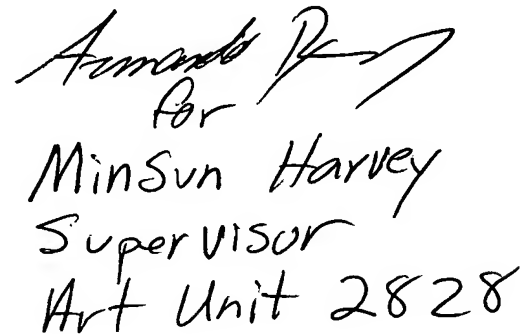 Armando
for
MinSun Harvey
Supervisor
Art Unit 2828